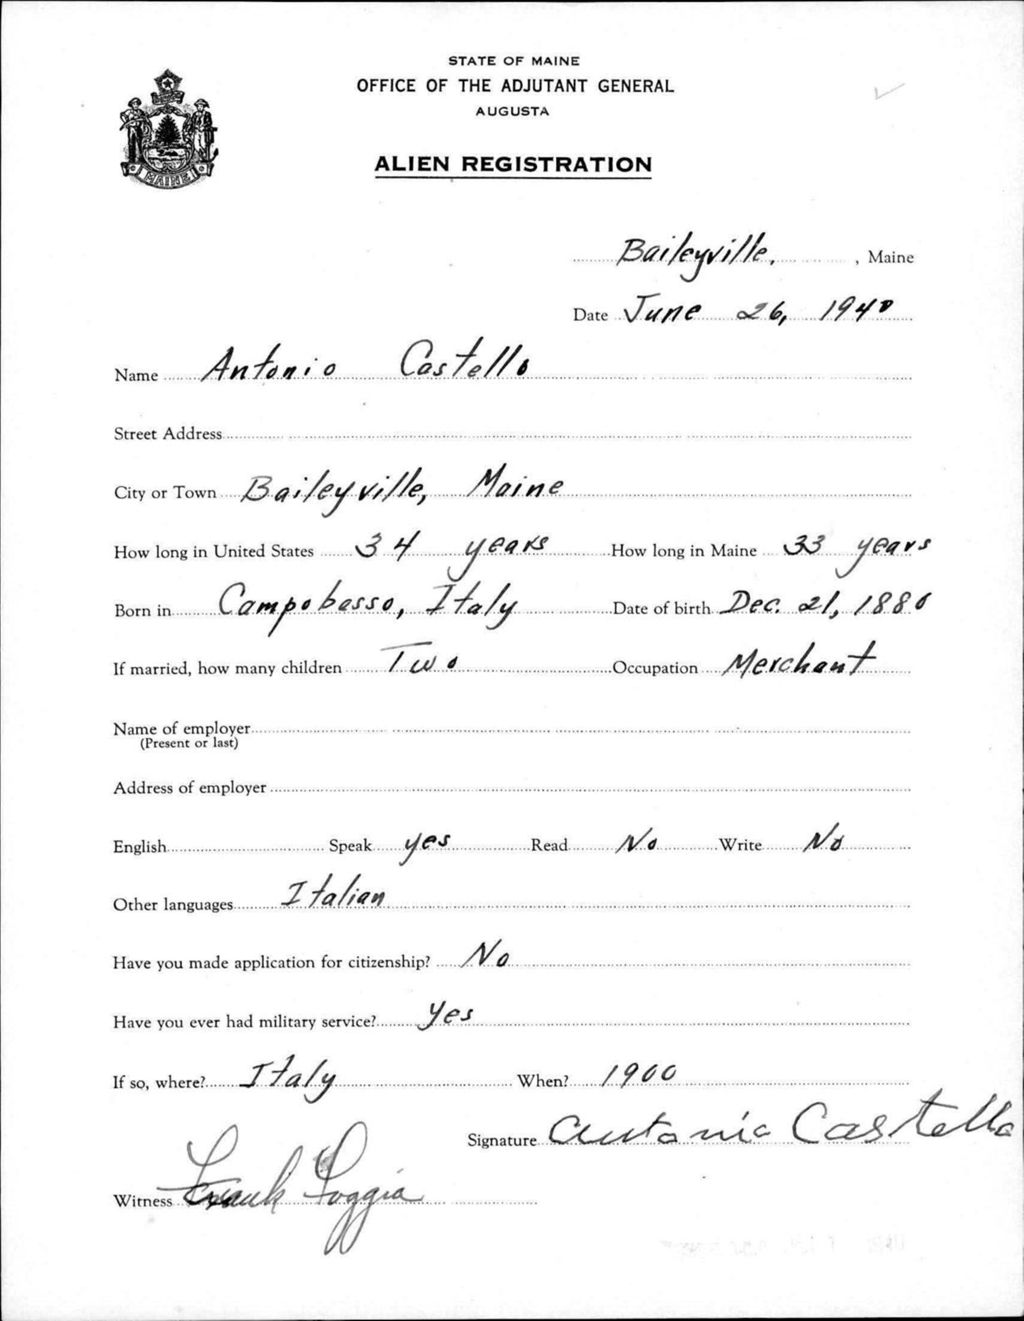 STATE OF MAINE
OFFICE OF THE ADJUTANT GENERAL
AUGUSTA
ALIEN REGISTRATION
MAINE
Baileyville, , Maine
Date June 26, 1940
Name Antonio Costello
Street Address
City or Town Baileyville, Maine
How long in United States 34 years How long in Maine 33 years
Born in Campobasso, Italy Date of birth Dec. 21, 1880
If married, how many children Two Occupation Merchant
Name of employer
(Present or last)
Address of employer
English Speak yes Read No Write No
Other languages Italian
Have you made application for citizenship? No
Have you ever had military service? Yes
If so, where? Italy When? 1900
Signature Antonio Castello
Witness Frank Foggia